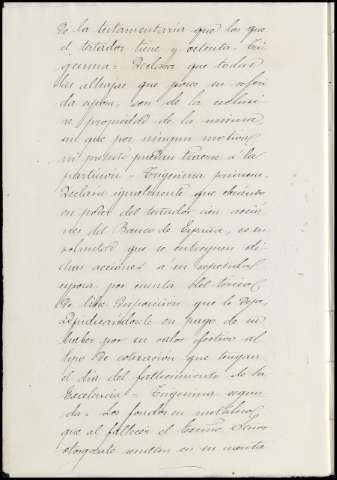 de la testamentaria que los que
el testador tiene y ostenta. Tri
gésima = Declara que todas
las alhajas que posee su referi
da esposa, son de la esclusi
va propiedad de la misma,
sin que por ningun motivo
ni pretesto puedan traerse á la
particion = Trigésima primera.
Declara igualmente que obrando
en poder del testador cien accio
nes del Banco de España, es su
voluntad que se entreguen di
chas acciones á su espresada
esposa, por cuenta del tercio
de libre disposicion que le deja,
adjudicándosele en pago de su
haber por su valor efectivo al
tipo de cotizacion que tengan
el dia del fallecimiento de Su
Excelencia = Trigésima segun
da. Los fondos en metálico
que al fallecer el Excmo Señor
otorgante resulten en su